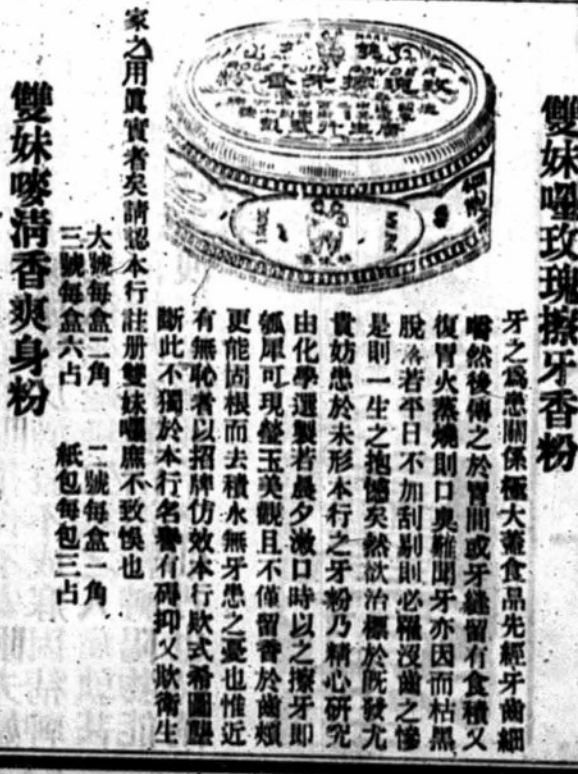 雙妹嘜玫瑰擦牙香粉
牙之爲患關係極大蓋食品先經牙齒細
嚼然後傳之於胃間或牙縫留有食積又
復胃火蒸燒則口臭難聞牙亦因而枯黑
脫落若平日不加刮剔則必罹沒齒之慘
是則一生之抱憾矣然欲治標於旣發尤
貴妨患於未形本行之牙粉乃精心研究
由化學選製若晨夕漱口時以之擦牙即
瓠犀可現瑩玉美觀且不僅留香於齒頰
更能固根而去積永無牙患之憂也惟近
有無恥者以招牌仿效本行欵式希圖壟
斷此不獨於本行名譽有碍抑又欺衛生
家之用眞實者矣請認本行註册雙妹嘜庶不致悞也
大號每盒二角 二號每盒一角
三號每盒六占 紙包每包三占
雙妹嘜淸香爽身粉
TRADE MARK
ROSE TOOTH POWDER
玫瑰擦牙香粉
廣生行